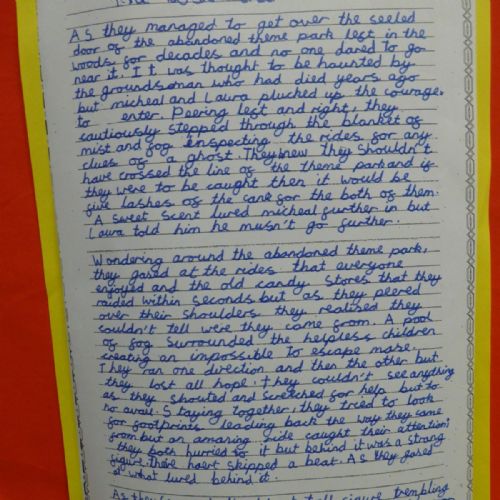 As they managed to get over the seeled
door of the abandoned theme park lest in the
woods for decades and no one dared to go
near it. It was thought to be haunted by
the groundsman who had died years ago
but micheal and Laura pluched up the courage
to enter. Peering lest and right, they
cautiously stepped through the blanket of
mist and fog enspecting the rides for any
clues of a ghost. They knew they shouldn't
have crossed the line of the theme park and if
they were to be caught then it would be
five lashes of the cane for the both of them.
A sweet scent lured micheal further in but
Laura told him he musn't go further.
Wondering around the abandoned theme park,
they gazed at the rides that everyone
enjoyed and the old candy stores that they
raided within seconds but as they peered
over their shoulders they realised they
couldn't tell were they came from. A pool
of fog surrounded the helpless children
creating an impossible to escape maze.
They ran one direction and then the other but
they lost all hope. They couldn't see anything
as they shouted and screched for help but to
no avail. Staying together, they tried to look
for footprints leading back the way they came
from but an amazing ride caught their attention;
they both hurried to it but behind it was a strang
figure. There haert skipped a beat. As they gazed
at what lured behind it.
tall figure trembling